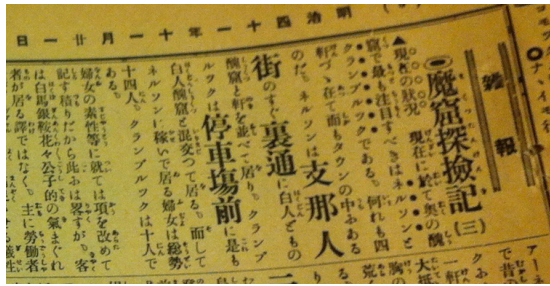 明治四十一年十一月廿一日
雜報
◉魔窟探檢記(三)
▲現在の狀況 現在に於て奥の醜
窟で最も注目すべきはネルソンと
クランブルツクである、何れも四
軒づゝ在て而もタウンの中にある
のだ、ネルソンは支那人
街のすぐ裏通に白人どもの
醜窟と軒を並べて居り、クランブ
ルツクは停車塲前に是も
白人醜窟と混交つて居る、而して
ネルソンに稼いで居る婦女は總勢
十四人、クランブルツクは十人で
ある、
婦女の素性等に就ては項を改めて
記す積りだから此には畧すが、客
は白馬銀鞍花々公子的の氣まぐれ
者が居る譯ではなく、主に勞働者